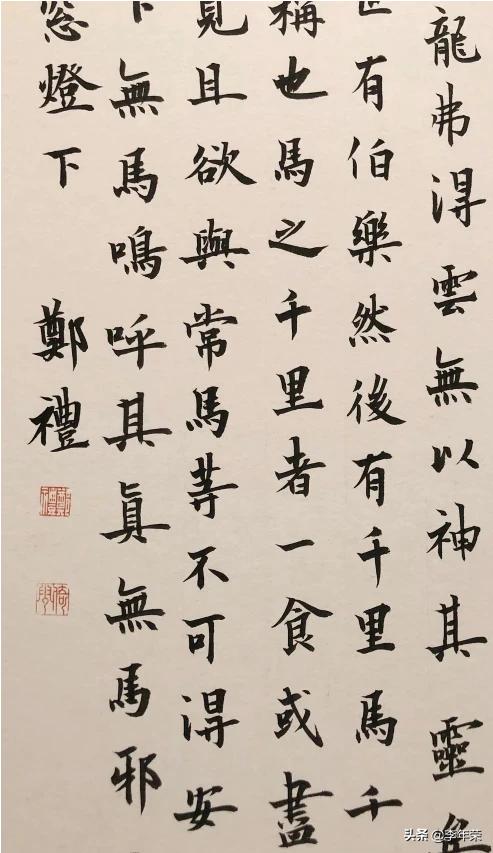 龍弗淂雲無以神其靈
世有伯樂然後有千里馬千
稱也馬之千里者一食或盡
見且欲與常馬等不可淂安
下無馬鳴呼其真無馬邪
燈下 鄭禮
头条 @李年荣